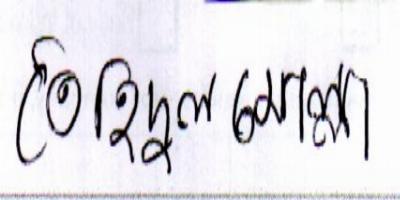 তৌহিদুল মোল্লা